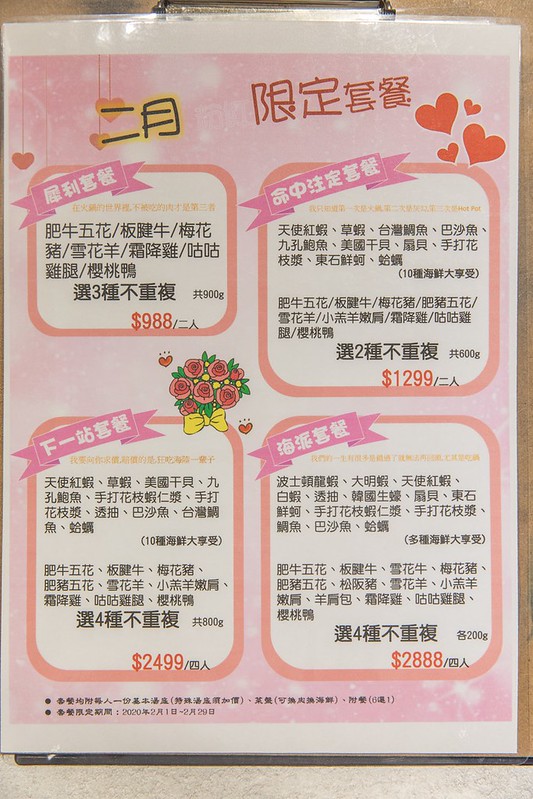 二月 限定套餐
犀利套餐
在火鍋的世界裡,不被吃的肉才是第三者
肥牛五花/板腱牛/梅花
豬/雪花羊/霜降雞/咕咕
雞腿/櫻桃鴨
選3種不重複 共900g
$988/二人
命中注定套餐
我只知道第一次是火鍋,第二次是 第三次是Hot Pot
天使紅蝦、草蝦、台灣鯛魚、巴沙魚、
九孔鮑魚、美國干貝、扇貝、手打花
枝漿、東石鮮蚵、蛤蠣
(10種海鮮大享受)
肥牛五花/板腱牛/梅花豬/肥豬五花/
雪花羊/小羔羊嫩肩/霜降雞/咕咕雞
腿/櫻桃鴨
選2種不重複 共600g
$1299/二人
下一站套餐
我要向你求償,賠償的是,狂吃海陸一輩子
天使紅蝦、草蝦、美國干貝、九
孔鮑魚、手打花枝蝦仁漿、手打
花枝漿、透抽、巴沙魚、台灣鯛
魚、蛤蠣
(10種海鮮大享受)
肥牛五花、板腱牛、梅花豬、
肥豬五花、雪花羊、小羔羊嫩肩、
霜降雞、咕咕雞腿、櫻桃鴨
選4種不重複 共800g
$2499/四人
海派套餐
我們的一生有很多坎過過了就無法再回頭,尤其是吃鍋
波士頓龍蝦、大明蝦、天使紅蝦、
白蝦、透抽、韓國生蠔、扇貝、東石
鮮蚵、手打花枝蝦仁漿、手打花枝漿、
鯛魚、巴沙魚、蛤蠣
(多種海鮮大享受)
肥牛五花、板腱牛、雪花牛、梅花豬、
肥豬五花、松阪豬、雪花羊、小羔羊
嫩肩、羊肩包、霜降雞、咕咕雞腿、
櫻桃鴨
選4種不重複 各200g
$2888/四人
● 套餐均附每人一份基本湯底(特殊湯底須加價)、菜盤(可換肉換海鮮)、附餐(6選1)
● 套餐限定期間:2020年2月1日~2月29日